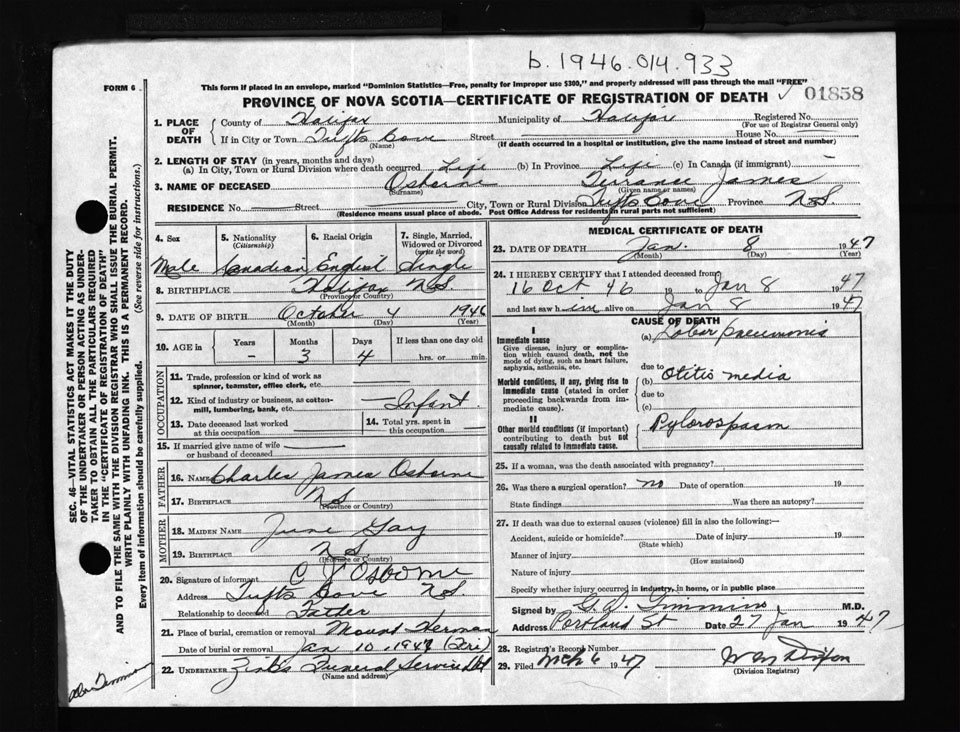 b. 1946.014.933
FORM 6
This form if placed in an envelope, marked "Dominion Statistics—Free, penalty for improper use $300," and properly addressed will pass through the mail "FREE"
PROVINCE OF NOVA SCOTIA—CERTIFICATE OF REGISTRATION OF DEATH
01858
1. PLACE OF DEATH
County of Halifax Municipality of Halifax Registered No.
(For use of Registrar General only)
If in City or Town Tufts Cove Street House No.
(Name) (If death occurred in a hospital or institution, give the name instead of street and number)
2. LENGTH OF STAY (in years, months and days)
(a) In City, Town or Rural Division where death occurred Life (b) In Province Life (c) In Canada (if immigrant) -
3. NAME OF DECEASED Osborne Terrance James
(Surname) (Given name or names)
RESIDENCE No. Street City, Town or Rural Division Tufts Cove Province N.S.
(Residence means usual place of abode. Post Office Address for residents in rural parts not useful)
4. Sex
Male
5. Nationality
(Citizenship)
Canadian
6. Racial Origin
English
7. Single, Married, Widowed or Divorced
(write the word)
Single
8. BIRTHPLACE Halifax N.S.
(Province or Country)
9. DATE OF BIRTH October 4 1946
(Month) (Day) (Year)
10. AGE in
Years Months Days If less than one day old
- 3 4 hrs. or min.
OCCUPATION
11. Trade, profession or kind of work as spinner, teamster, office clerk, etc.
12. Kind of industry or business, as cotton-mill, lumbering, bank, etc. Infant
13. Date deceased last worked at this occupation
14. Total yrs. spent in this occupation
15. If married give name of wife or husband of deceased
FATHER
16. NAME Charles James Osborne
17. BIRTHPLACE N.S.
(Province or Country)
MOTHER
18. MAIDEN NAME June Gay
19. BIRTHPLACE N.S.
(Province or Country)
20. Signature of informant C J Osborne
Address Tufts Cove N.S.
Relationship to deceased Father
21. Place of burial, cremation or removal Mount Herman
Date of burial or removal Jan 10, 1947 (Fri)
22. UNDERTAKER Zink's Funeral Service Ltd
(Name and address)
MEDICAL CERTIFICATE OF DEATH
23. DATE OF DEATH Jan. 8 1947
(Month) (Day) (Year)
24. I HEREBY CERTIFY that I attended deceased from
16 Oct 46 19 to Jan 8 1947
and last saw h im alive on Jan 8 1947
CAUSE OF DEATH
I
Immediate cause
Give disease, injury or complication which caused death, not the mode of dying, such as heart failure, asphyxia, asthenia, etc.
(a) Lobar pneumonia
due to
Morbid conditions, if any, giving rise to immediate cause (stated in order proceeding backwards from immediate cause).
(b) Otitis media
due to
(c)
II
Other morbid conditions (if important) contributing to death but not causally related to immediate cause.
Pylorospasm
25. If a woman, was the death associated with pregnancy?
26. Was there a surgical operation? no Date of operation 19
State findings Was there an autopsy?
27. If death was due to external causes (violence) fill in also the following:—
Accident, suicide or homicide? Date of injury 19
(State which)
Manner of injury
(How sustained)
Nature of injury
Specify whether injury occurred in industry, in home, or in public place
Signed by G. D. Timmins M.D.
Address Portland St Date 27 Jan 1947
28. Registrar's Record Number
29. Filed Mch 6 1947
(Division Registrar)
SEC. 46—VITAL STATISTICS ACT MAKES IT THE DUTY
OF THE UNDERTAKER OR PERSON ACTING AS UNDER-
TAKER TO OBTAIN ALL THE PARTICULARS REQUIRED
IN THE "CERTIFICATE OF REGISTRATION OF DEATH"
AND TO FILE THE SAME WITH THE DIVISION REGISTRAR WHO SHALL ISSUE THE BURIAL PERMIT.
WRITE PLAINLY WITH UNFADING INK. THIS IS A PERMANENT RECORD.
Every item of information should be carefully supplied. (See reverse side for instructions.)